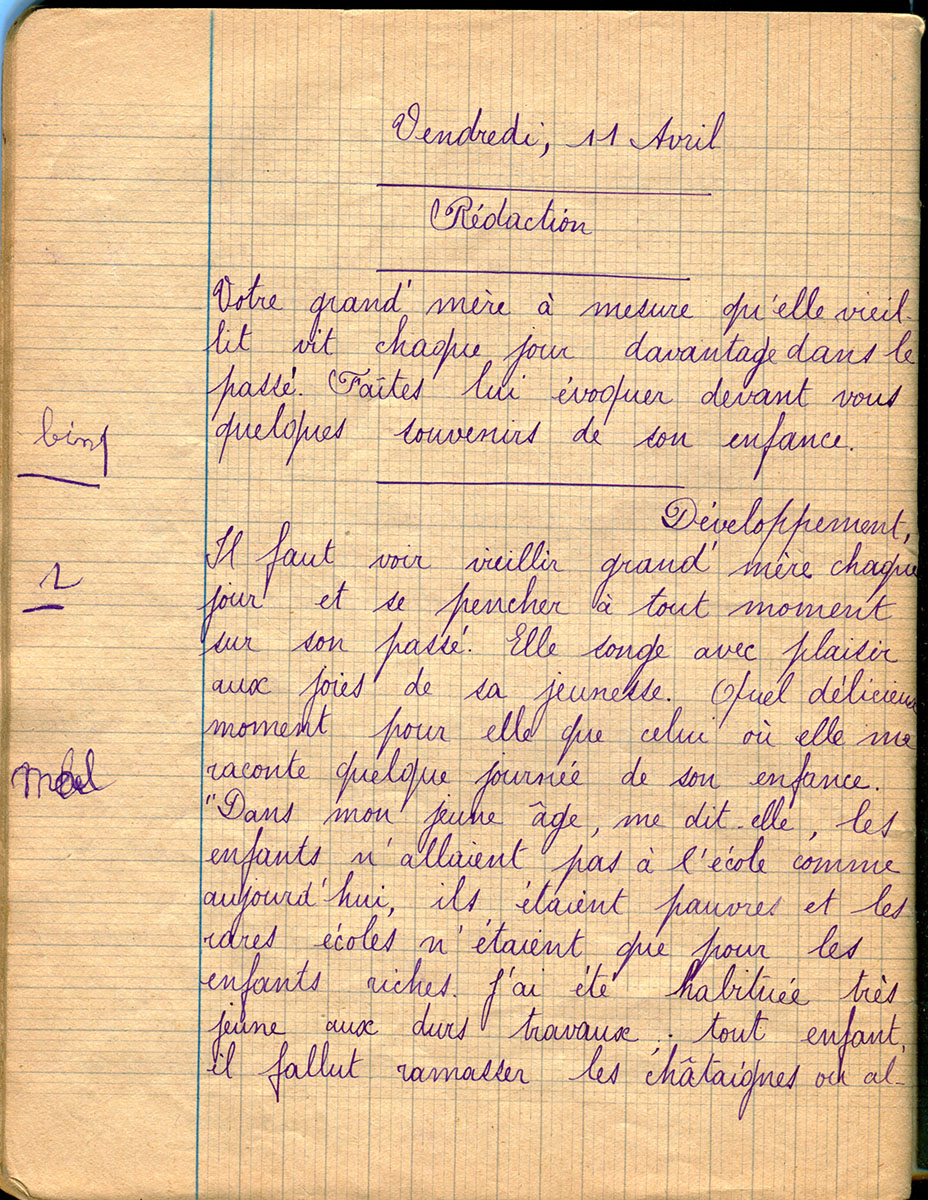 Vendredi, 11 Avril
Rédaction
Votre grand' mère à mesure qu'elle vieil-
lit vit chaque jour davantage dans le
passé. Faites lui évoquer devant vous
quelques souvenirs de son enfance.
Développement,
Il faut voir vieillir grand' mère chaque
jour et se pencher à tout moment
sur son passé. Elle songe avec plaisir
aux joies de sa jeunesse. Quel délicieux
moment pour elle que celui où elle me
raconte quelque journée de son enfance.
"Dans mon jeune âge, me dit-elle, les
enfants n'allaient pas à l'école comme
aujourd'hui, ils étaient pauvres et les
rares écoles n'étaient que pour les
enfants riches. J'ai été habituée très
jeune aux durs travaux ; tout enfant,
il fallut ramasser les châtaignes ou al-